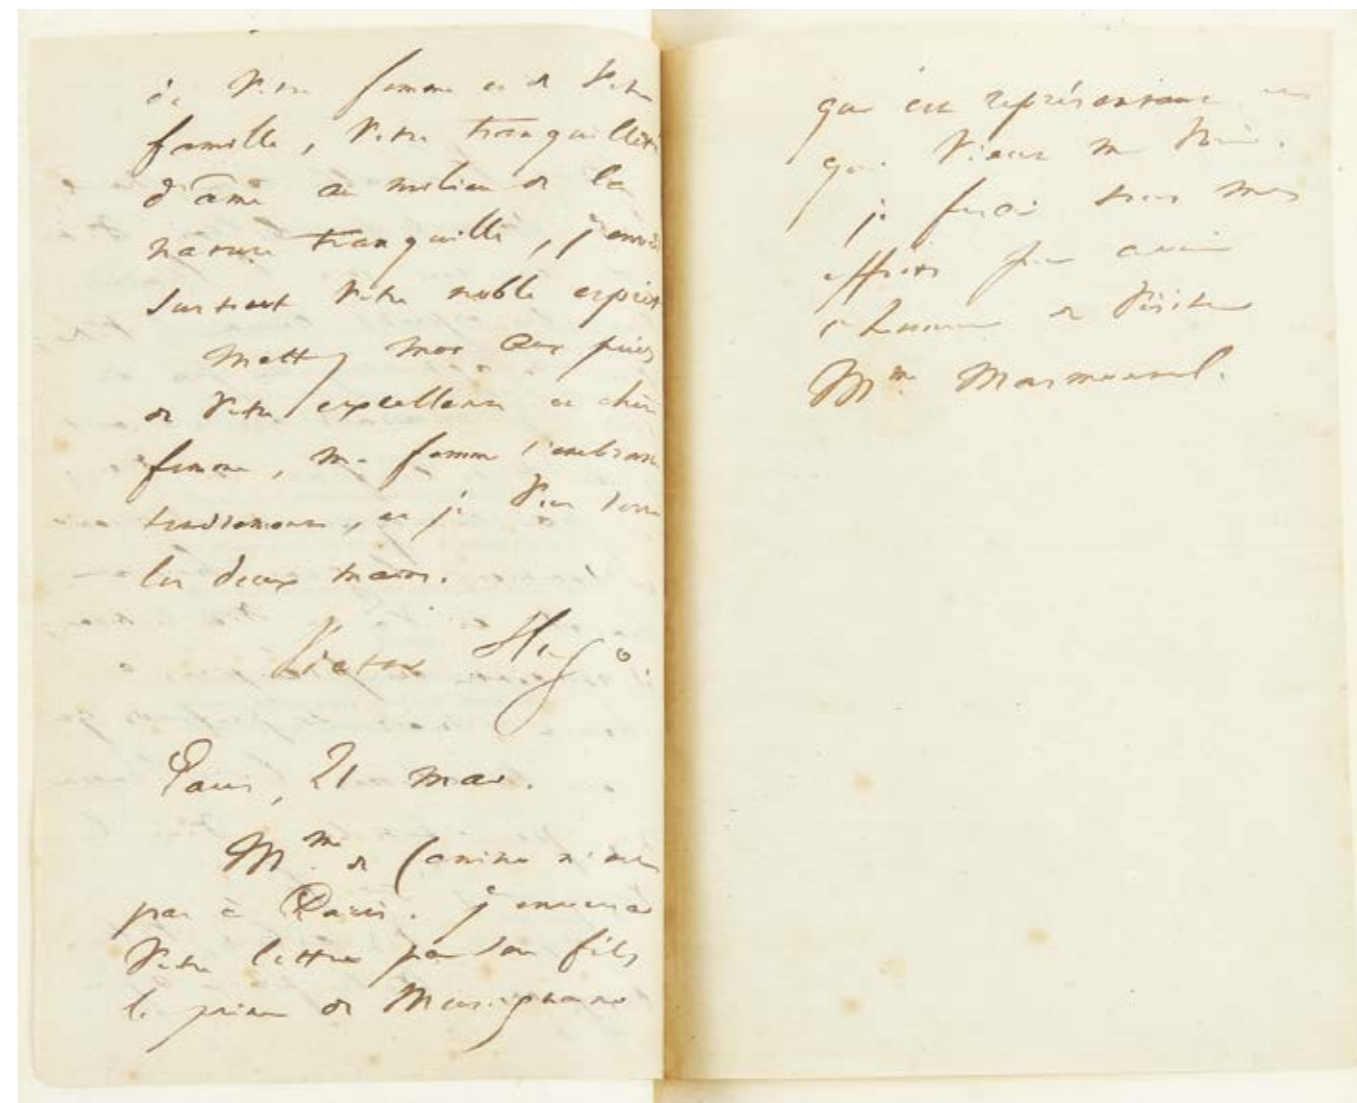 de votre femme et de votre
famille, votre tranquillité
d'âme au milieu de la
nature tranquille, j'envie
surtout votre noble esprit
Mettez moi aux pieds
de votre excellente et chère
femme, ma femme l'embrasse
tendrement, et je vous serre
les deux mains.
Victor Hugo.
Paris, 21 mai.
Mme de Canino n'est
pas à Paris. j'enverrai
votre lettre par son fils
le prince de Musignano
qui est représentant et
qui vient me voir.
je ferai tous mes
efforts pour avoir
l'honneur de visiter
Mme